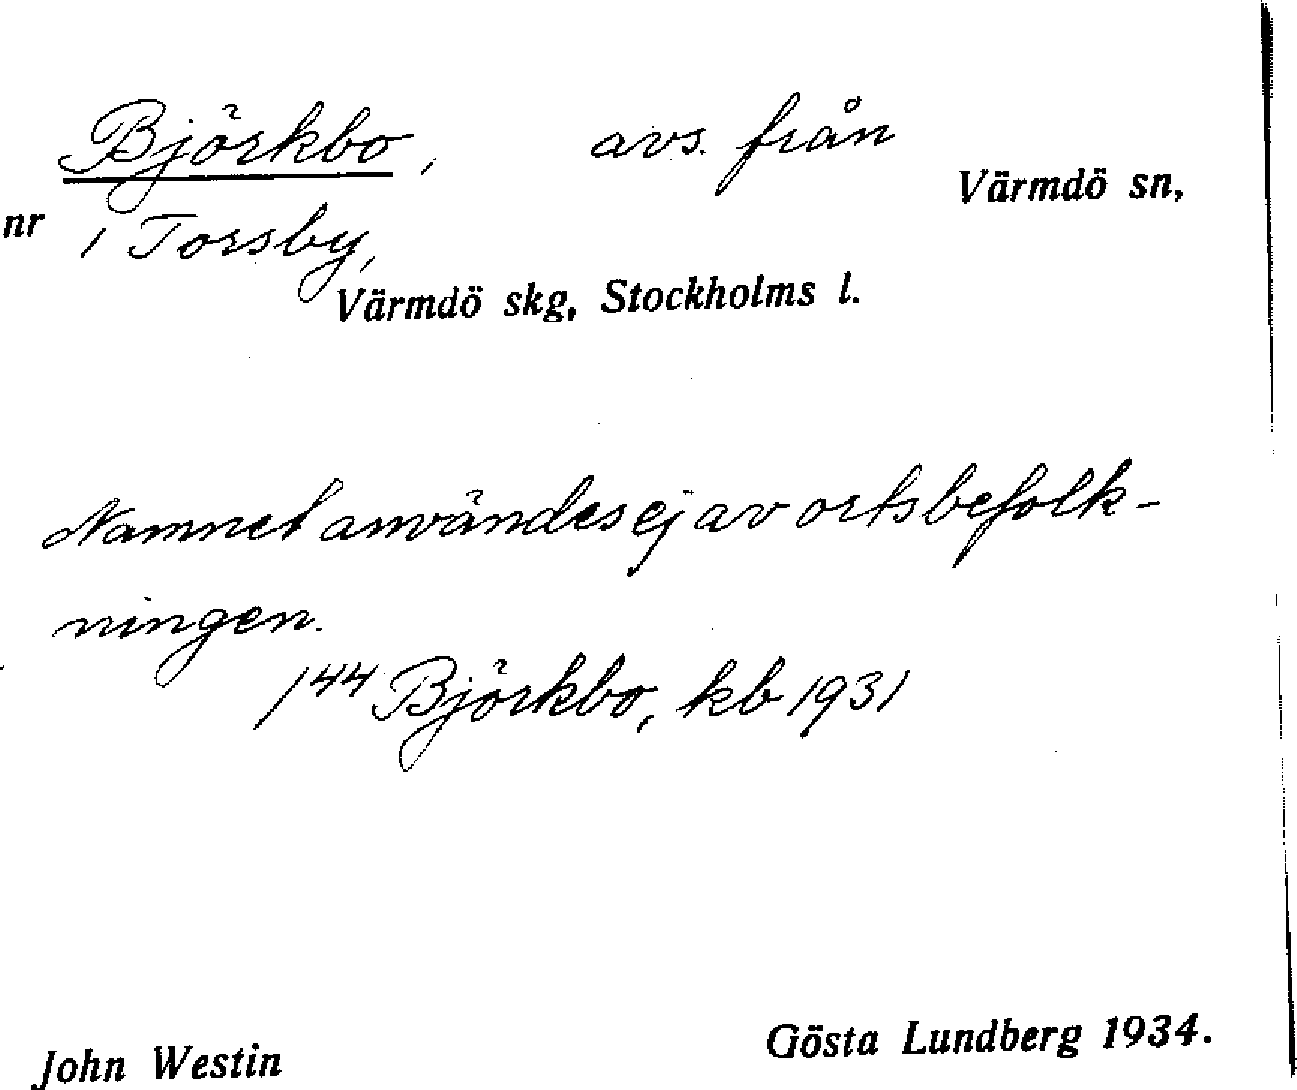 Björkbo, avs. från
Värmdö sn,
nr 1 Torsby,
Värmdö skg, Stockholms l.
Namnet användes ej av ortsbefolk-
ningen.
1⁴⁴ Björkbo, kb 1931
John Westin
Gösta Lundberg 1934.